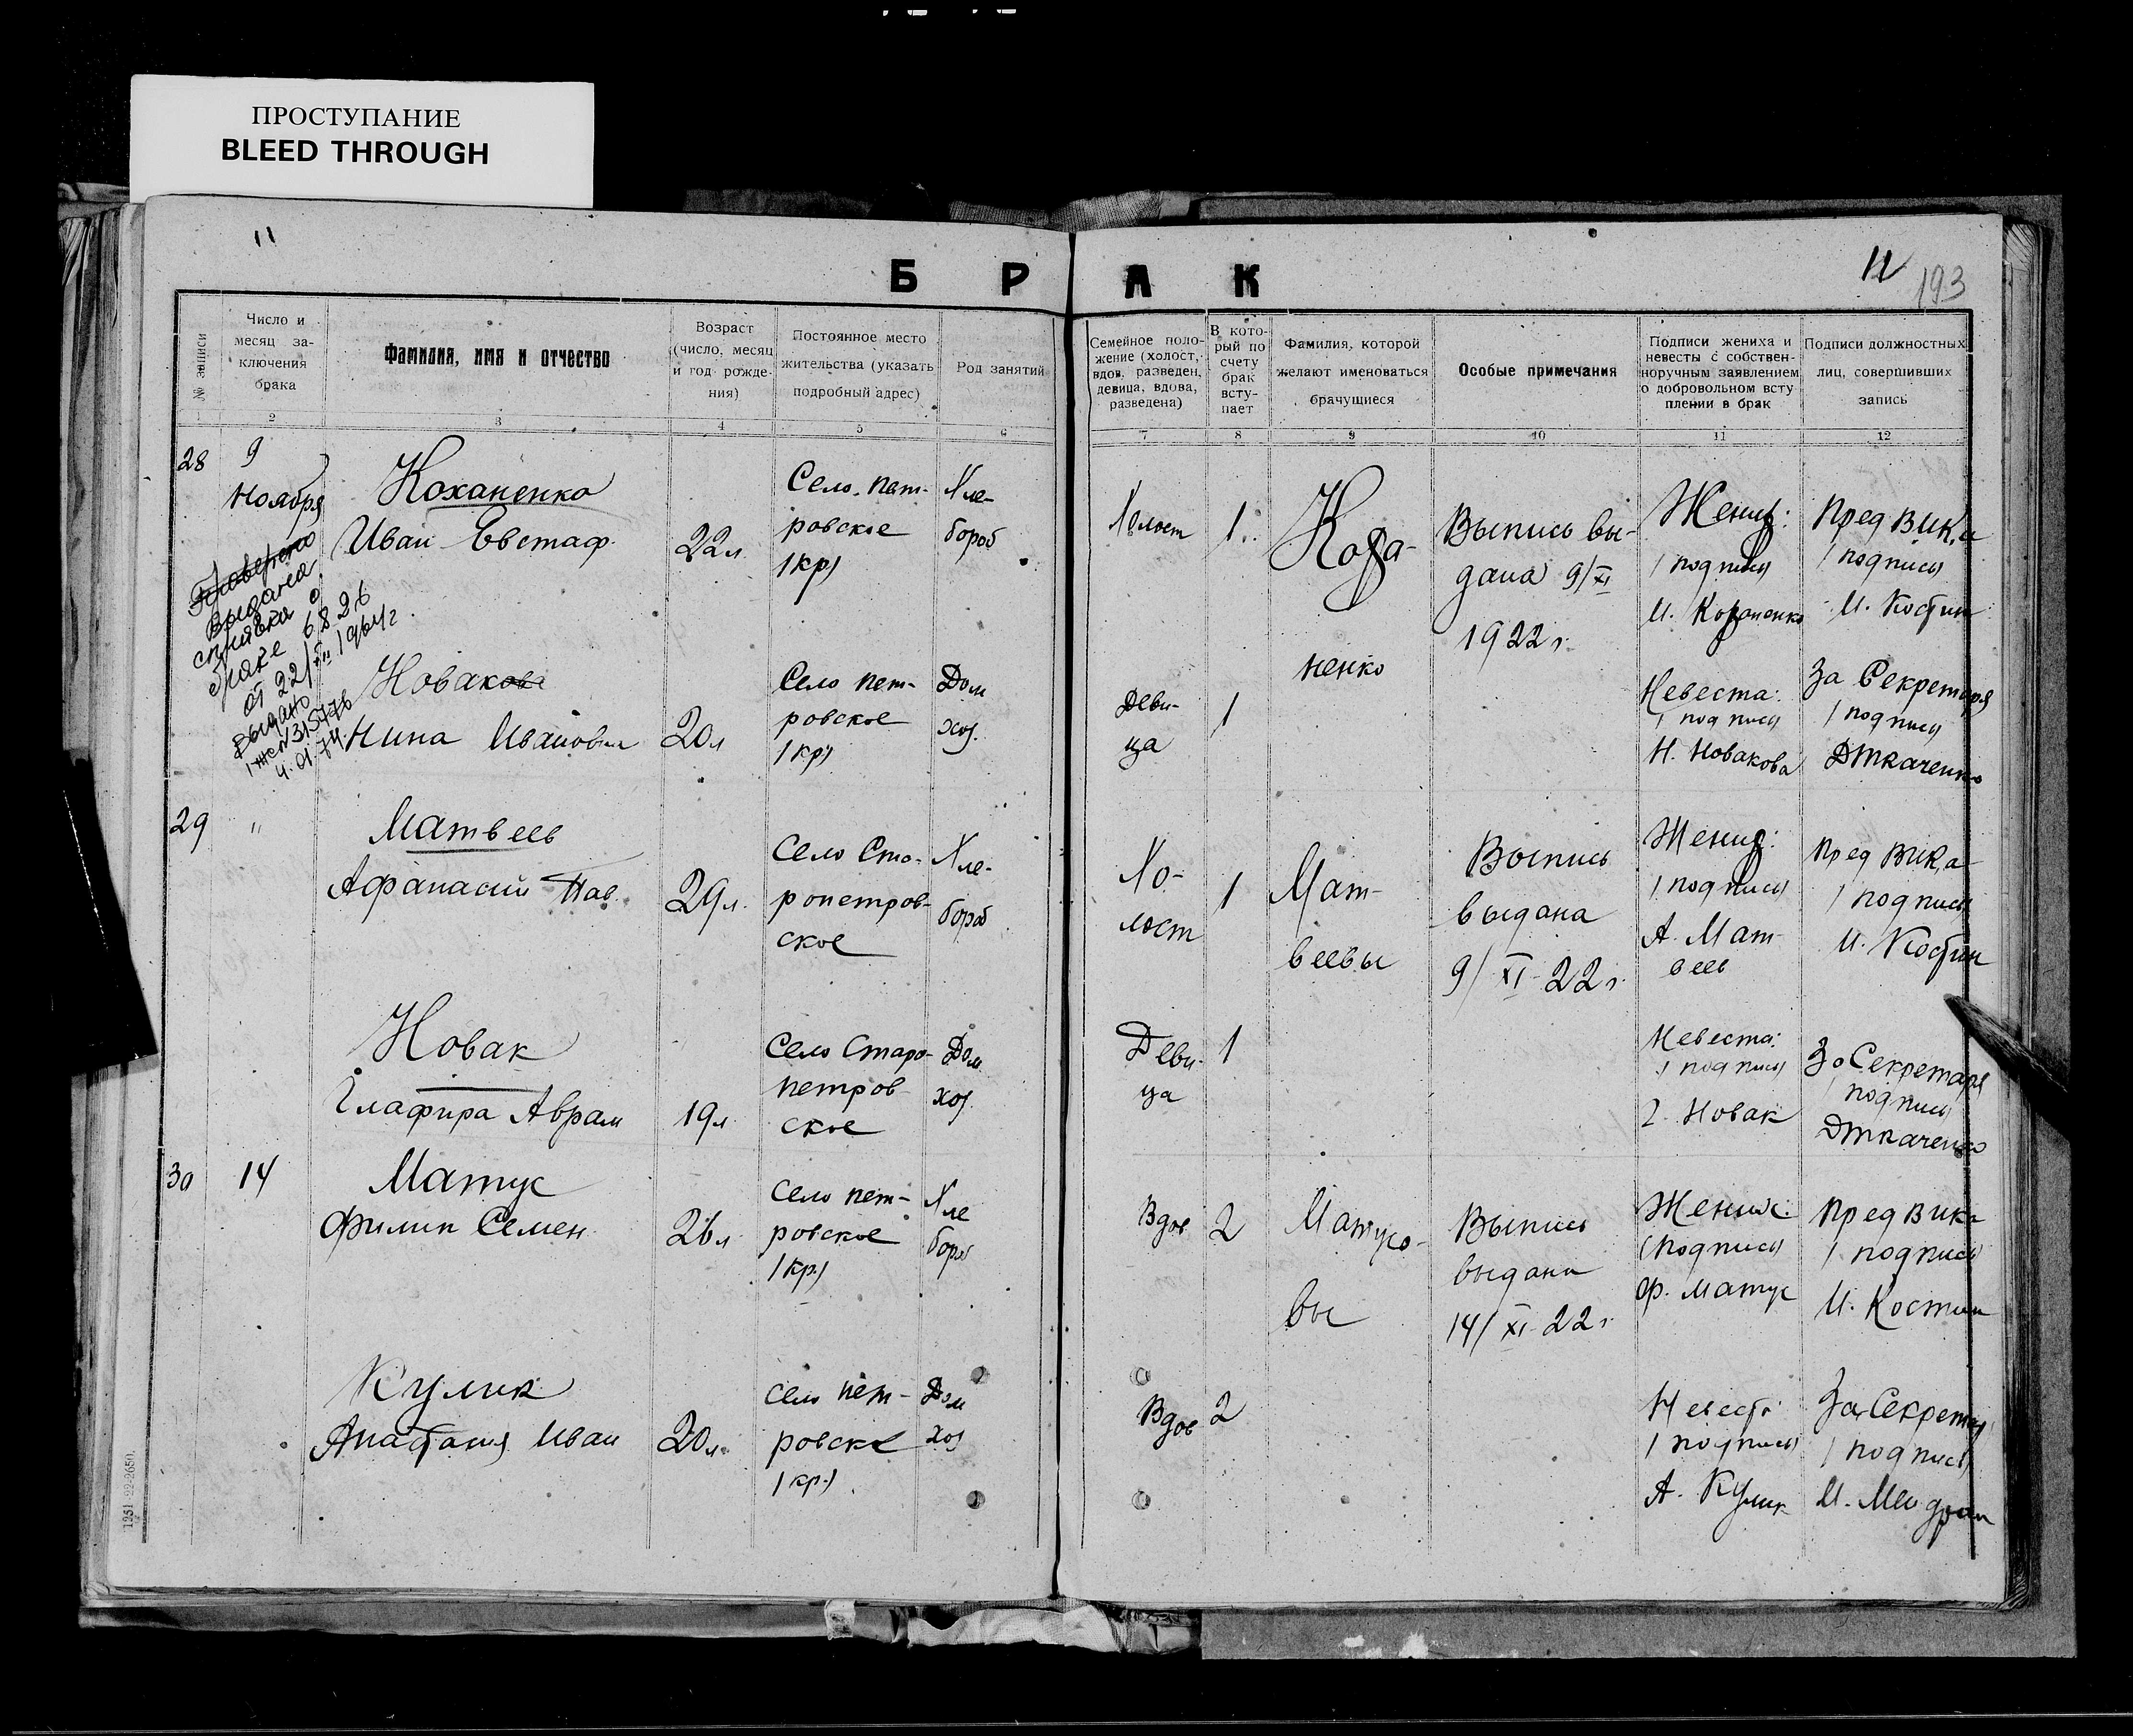 ПРОСТУПАНИЕ
BLEED THROUGH
11
11
193
Б Р А К
№ записи
Число и
месяц за-
ключения
брака
Фамилия, имя и отчество
Возраст
(число, месяц
и год рожде-
ния)
Постоянное место
жительства (указать
подробный адрес)
Род занятий
Семейное поло-
жение (холост,
вдов, разведен,
девица, вдова,
разведена)
В кото-
рый по
счету
брак
всту-
пает
Фамилия, которой
желают именоваться
брачущиеся
Особые примечания
Подписи жениха и
невесты с собствен-
норучным заявлением
о добровольном всту
плении в брак
Подписи должностных
лиц, совершивших
запись
1 2 3 4 5 6 7 8 9 10 11 12
28
9
Ноября
Коханенко
Иван Евстаф.
22л
Село Пет-
ровское
/кр/
Хле-
бороб
Холост
1
Коха-
ненко
Выпись вы-
дана 9/XI
1922 г.
Жених:
/подпись/
И. Коханенко
Пред ВИК,а
/подпись/
И. Костин
Проверено
Выдана
справка о
браке 6826
от 22/XII 1964г.
Выдано
ч. 01. 74.
Новакова
Нина Ивановна
20л
Село Пет-
ровское
/кр/
Дом
хоз.
Деви-
ца
1
Невеста:
/подпись/
Н. Новакова
За Секретаря
/подпись/
ДТкаченко
29
"
Матвеев
Афанасий Пав.
29л.
Село Ста-
ропетров-
ское
Хле-
бороб
Хо-
лост
1
Мат-
веевы
Выпись
выдана
9/XI-22г.
Жених:
/подпись/
А. Мат-
веев
Пред ВИК,а
/подпись/
И. Костин
Новак
Глафира Аврам
19л
Село Старо-
петров-
ское
Дом
хоз.
Деви-
ца
1
Невеста:
/подпись/
Г. Новак
За Секретаря
/подпись/
ДТкаченко
30
14
Матус
Филип Семен.
26л
Село Пет-
ровское
/кр./
Хле
бороб
Вдов
2
Матусо-
вы
Выпись
выдана
14/XI-22г.
Жених:
/подпись/
Ф. Матус
Пред Вика
/подпись/
И. Костин
Кулик
Анастасия Иван
20л.
Село Пет-
ровское
/кр./
Дом
хоз
Вдов
2
Невест:
/подпись/
А. Кулик
За Секретар
/подпись/
1951 22-2650.